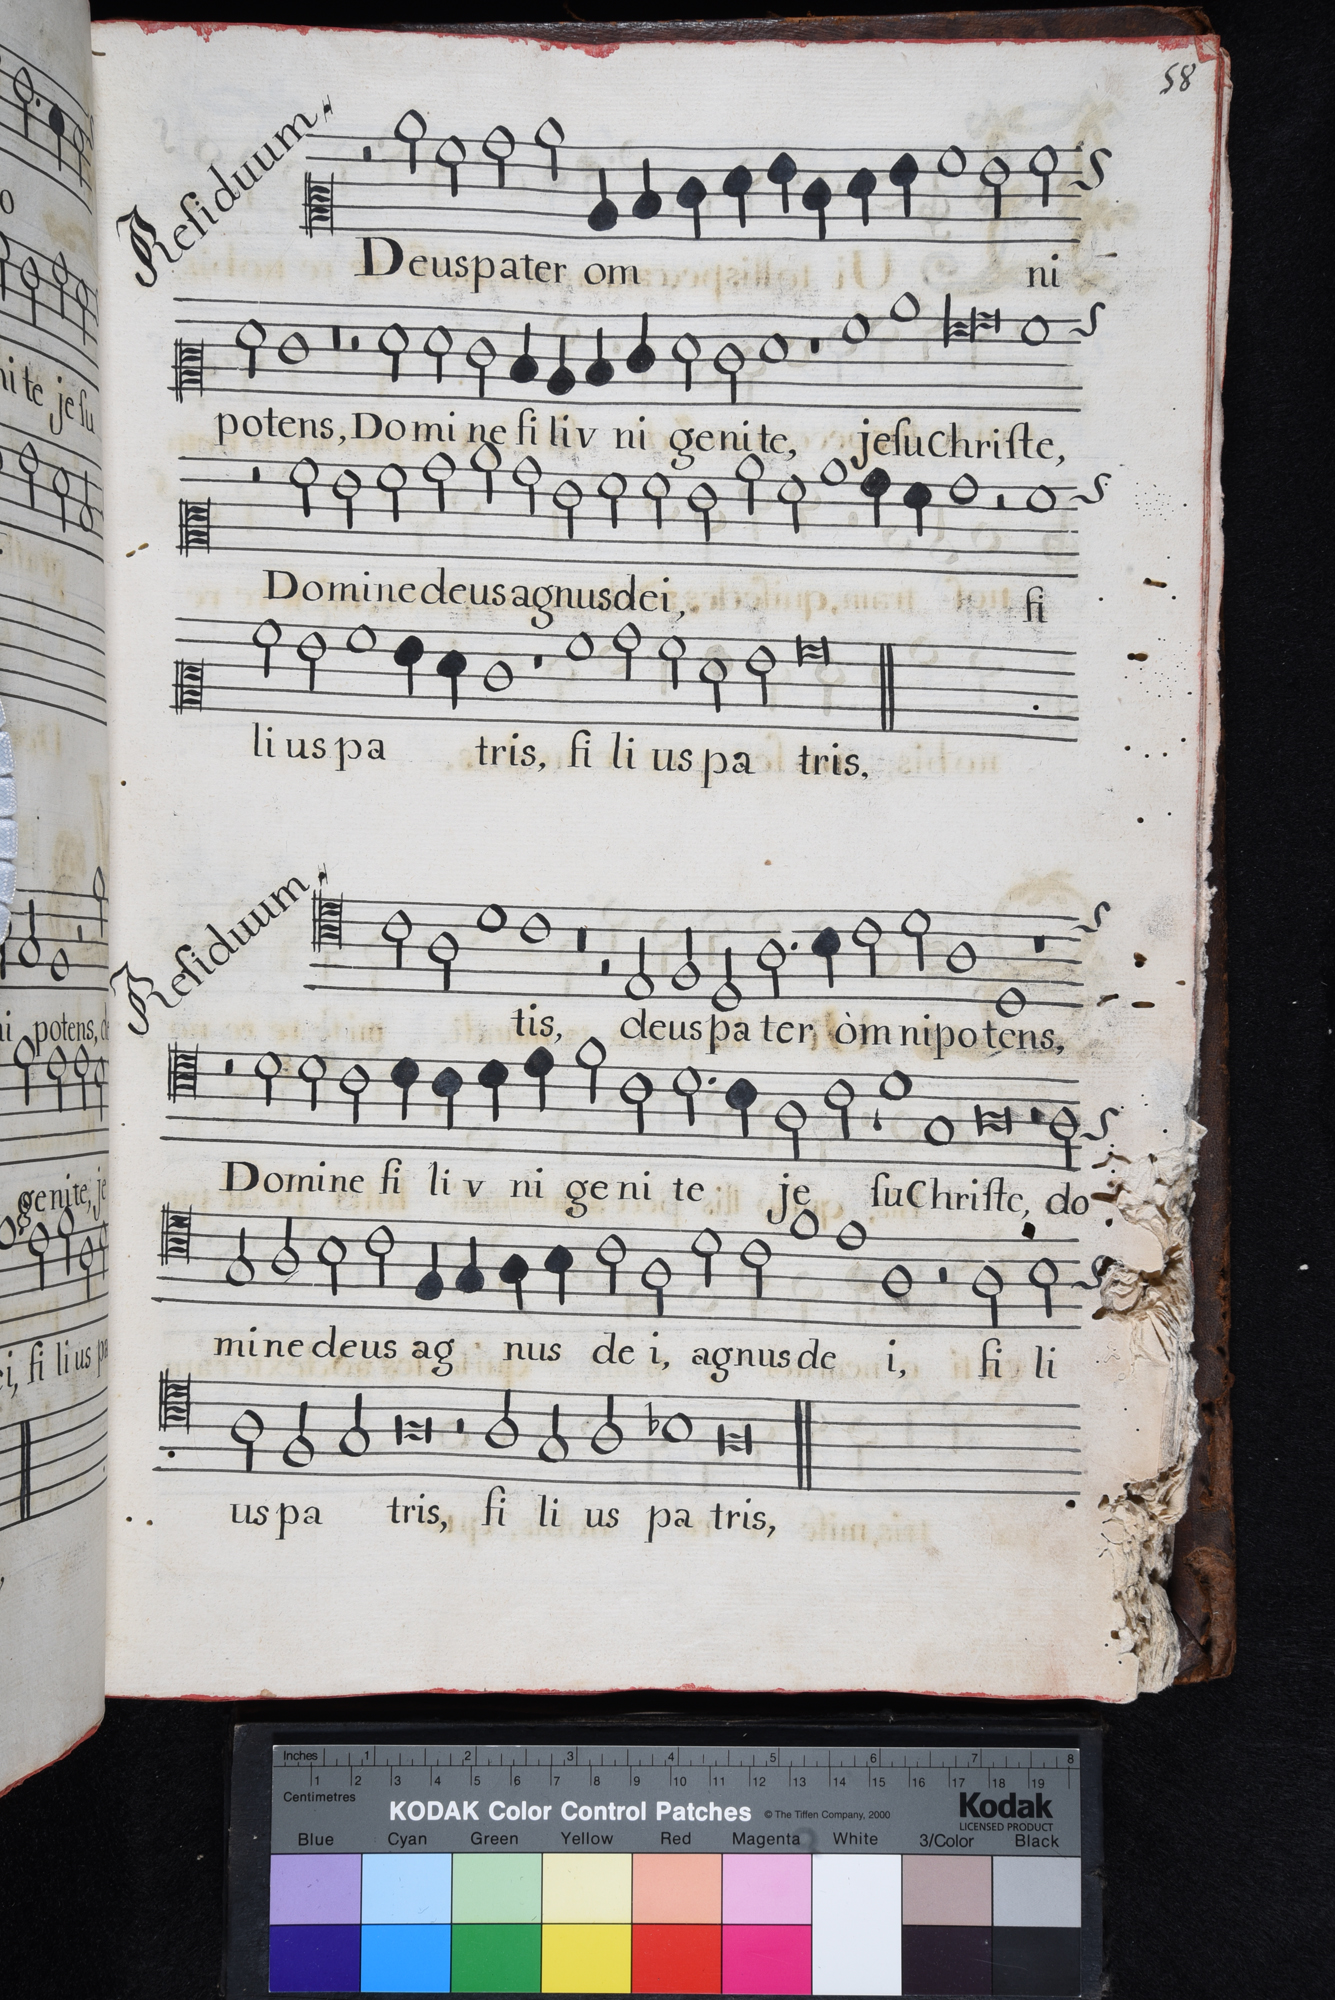 58
Residuum
Deus pater om ni
potens, Domine fili v ni genite, jesu Christe,
Domine deus agnus dei, fi
li us pa tris, fi li us pa tris,
Residuum
tis, deus pa ter om nipotens,
Domine fi li v ni ge ni te je su Christe, do
mine deus ag nus de i, agnus de i, fi li
us pa tris, fi li us pa tris,
o
ni te je su
ni potens, d
genite, je
ei, fi li us pa
Inches 1 2 3 4 5 6 7 8
Centimetres 1 2 3 4 5 6 7 8 9 10 11 12 13 14 15 16 17 18 19
KODAK Color Control Patches © The Tiffen Company, 2000 Kodak
LICENSED PRODUCT
Blue Cyan Green Yellow Red Magenta White 3/Color Black